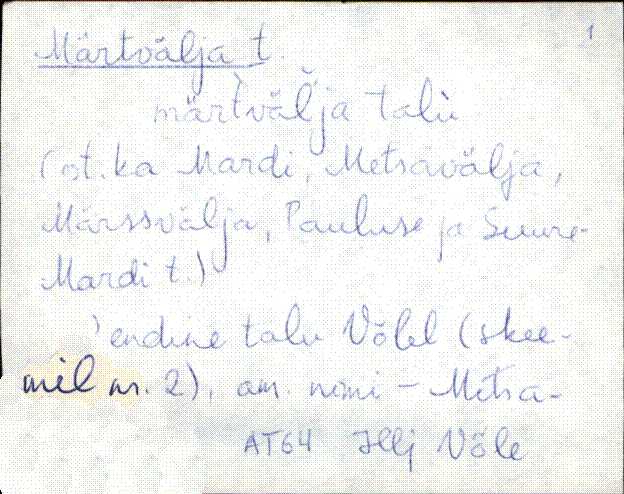 1
Märtvälja t.
märtvälja talu
(ot. ka Mardi, Metsavälja,
Märssvälja, Pauluse ja Suure-
Mardi t.)
'endine talu Võlel (skee-
mil nr. 2), am. nimi – Metsa-
AT64 Hllj Võle